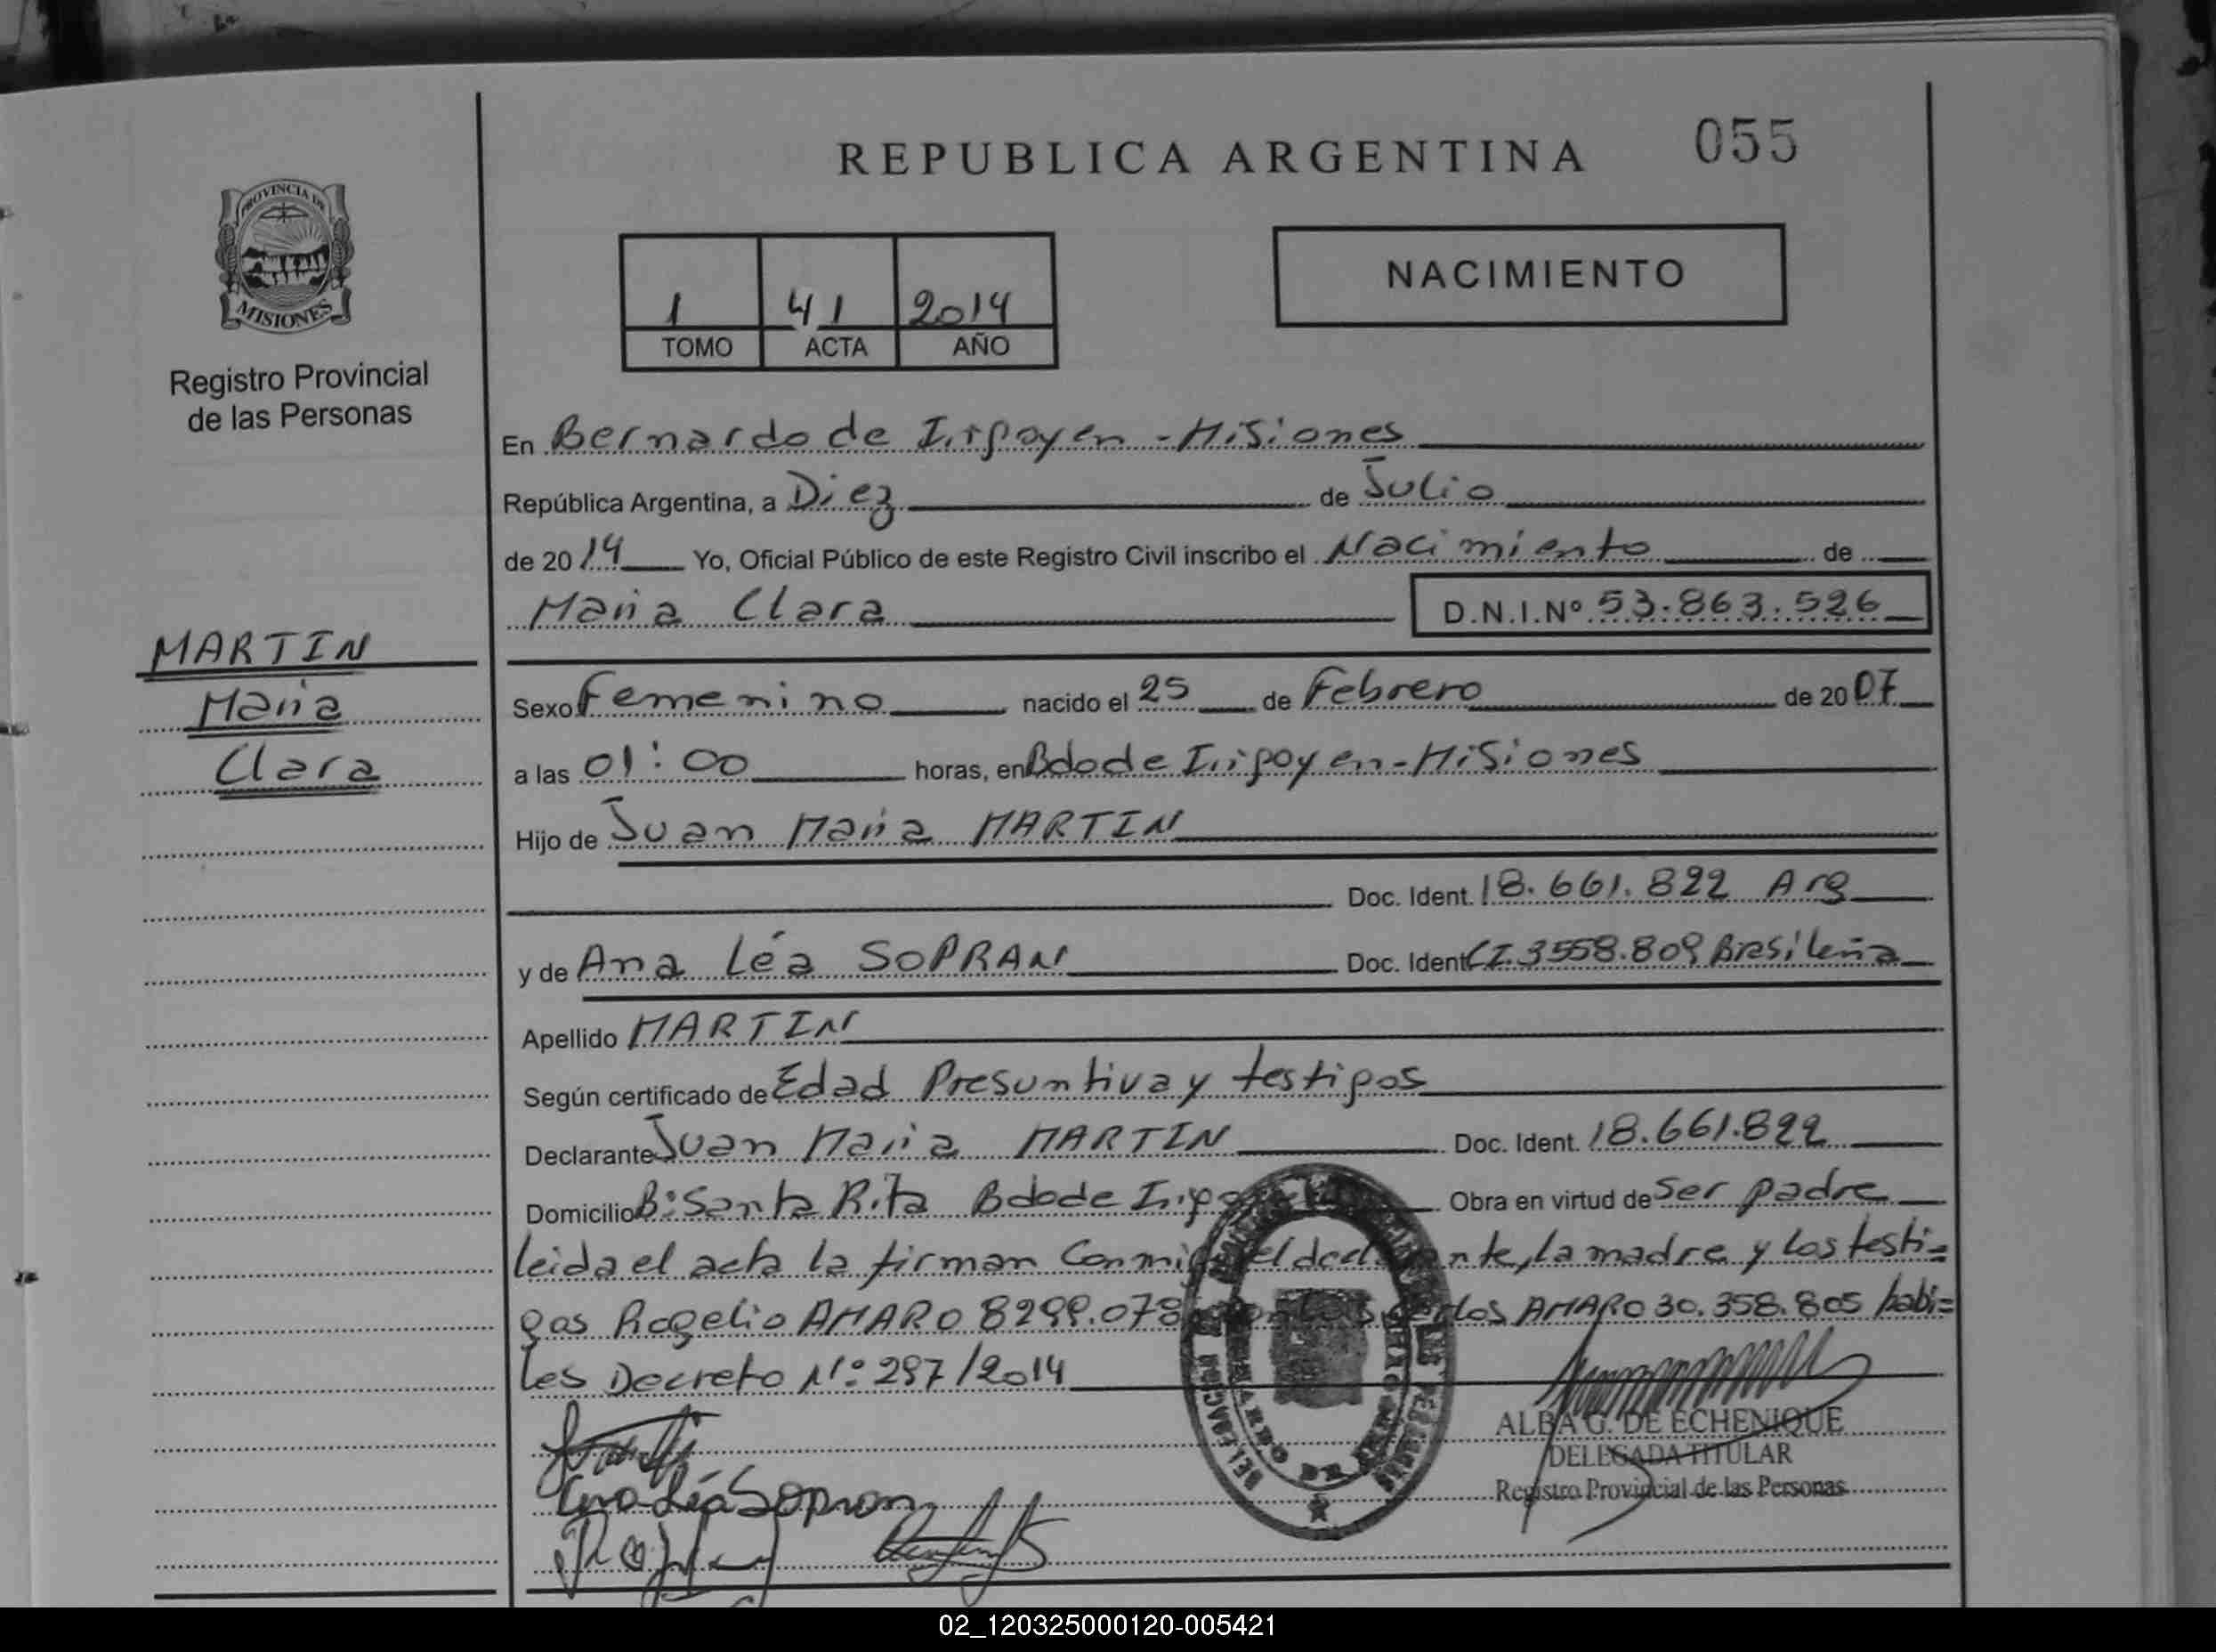 055
REPUBLICA ARGENTINA
PROVINCIA DE
MISIONES
Registro Provincial
de las Personas
1 41 2014
TOMO ACTA AÑO
NACIMIENTO
En Bernardo de Irigoyen - Misiones
República Argentina, a Diez de Julio
de 2014 Yo, Oficial Público de este Registro Civil inscribo el Nacimiento de
Maria Clara D.N.I.Nº 53.863.526
MARTIN
Maria
Clara
Sexo Femenino nacido el 25 de Febrero de 2007
a las 01:00 horas, en Bdo de Irigoyen - Misiones
Hijo de Juan Maria MARTIN
Doc. Ident. 18.661.822 Arg
y de Ana Léa SOPRAN Doc. Ident CI.3558.809 Brasileña
Apellido MARTIN
Según certificado de Edad Presuntiva y testigos
Declarante Juan Maria MARTIN Doc. Ident. 18.661.822
Domicilio B: Santa Rita Bdo de Obra en virtud de Ser padre
leida el acta la firman Conmigo el declarante, la madre y los testi=
gos Rogelio AMARO 8299.078 Carlos AMARO 30.358.805 habi=
les Decreto Nº: 297/2014
Ana Léa Sopran
ALBA G. DE ECHENIQUE
DELEGADA TITULAR
Registro Provincial de las Personas
02_120325000120-005421